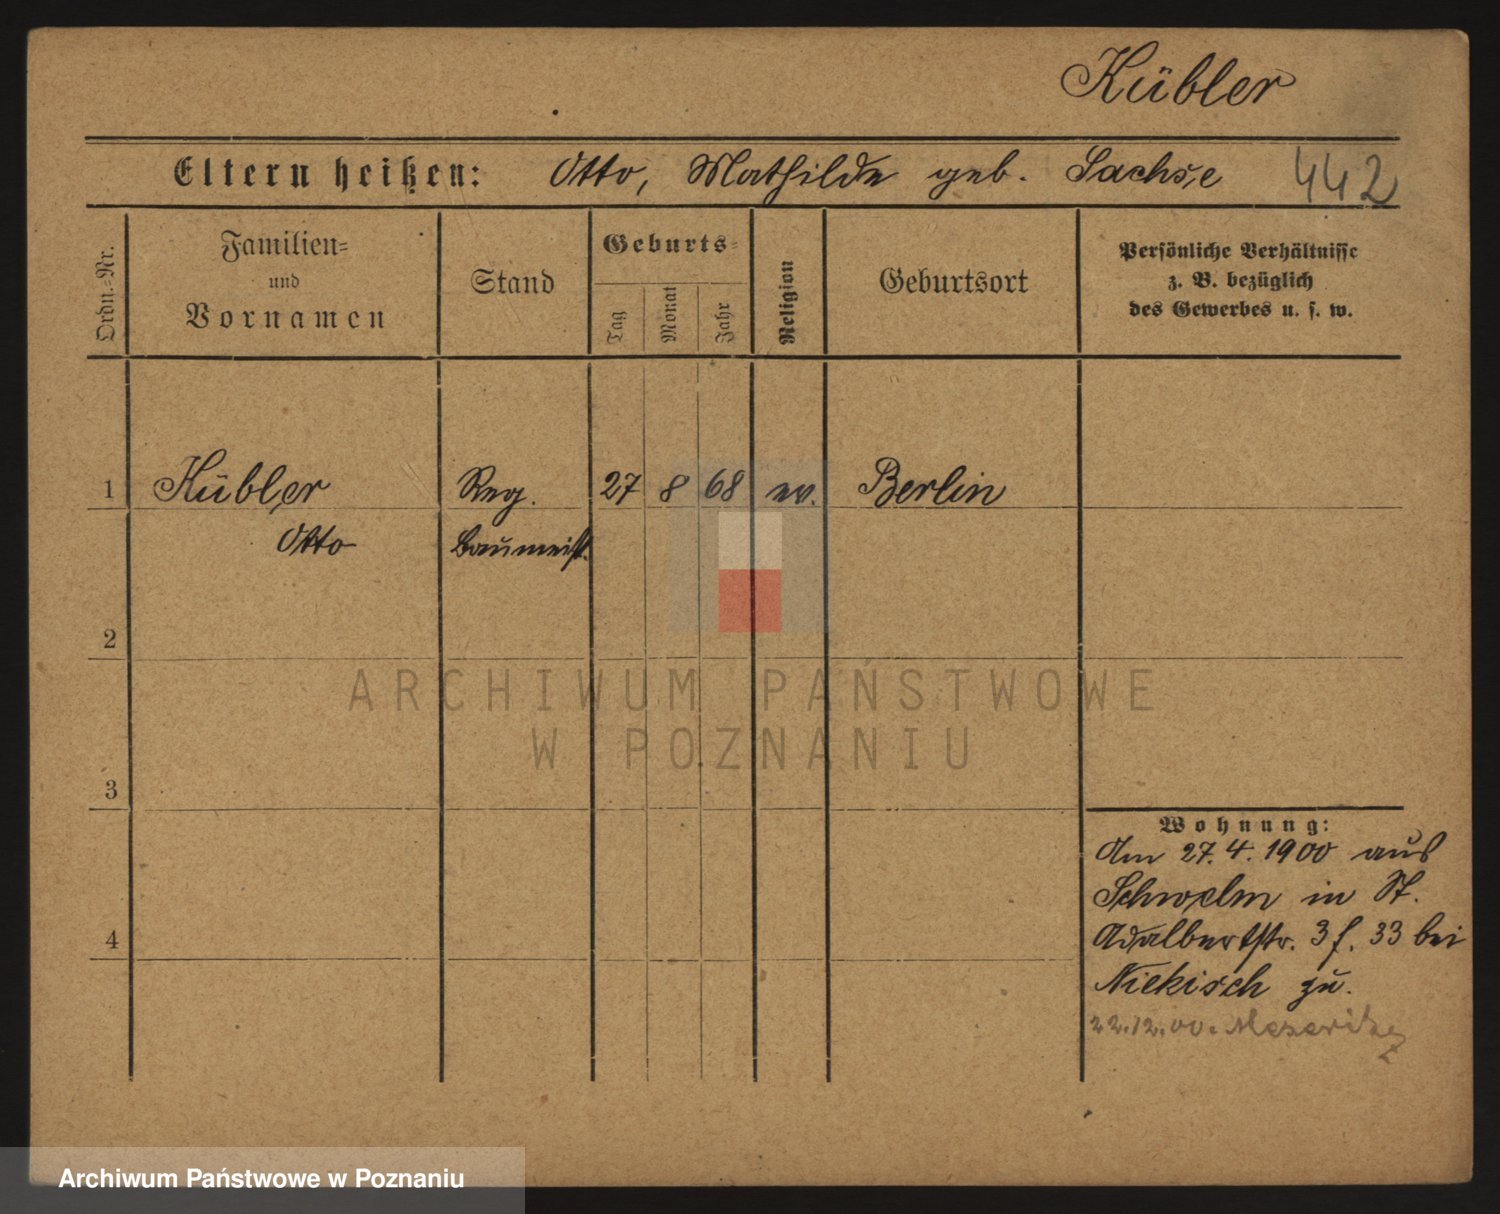 Kübler
Eltern heißen: Otto, Mathilde geb. Sachse 442
Ordn.=Nr.
Familien=
und
Vornamen
Stand
Geburts=
Tag
Monat
Jahr
Religion
Geburtsort
Persönliche Verhältnisse
z. B. bezüglich
des Gewerbes u. s. w.
1 Kübler Reg. 27 8 68 ev. Berlin
Otto Baumeist.
2
ARCHIWUM PAŃSTWOWE
W POZNANIU
3
Wohnung:
Am 27.4.1900 aus
Schwelm in St.
Adalbertstr. 3 f. 33 bei
4
Niekisch zu.
22.12.00. Meseritz
Archiwum Państwowe w Poznaniu